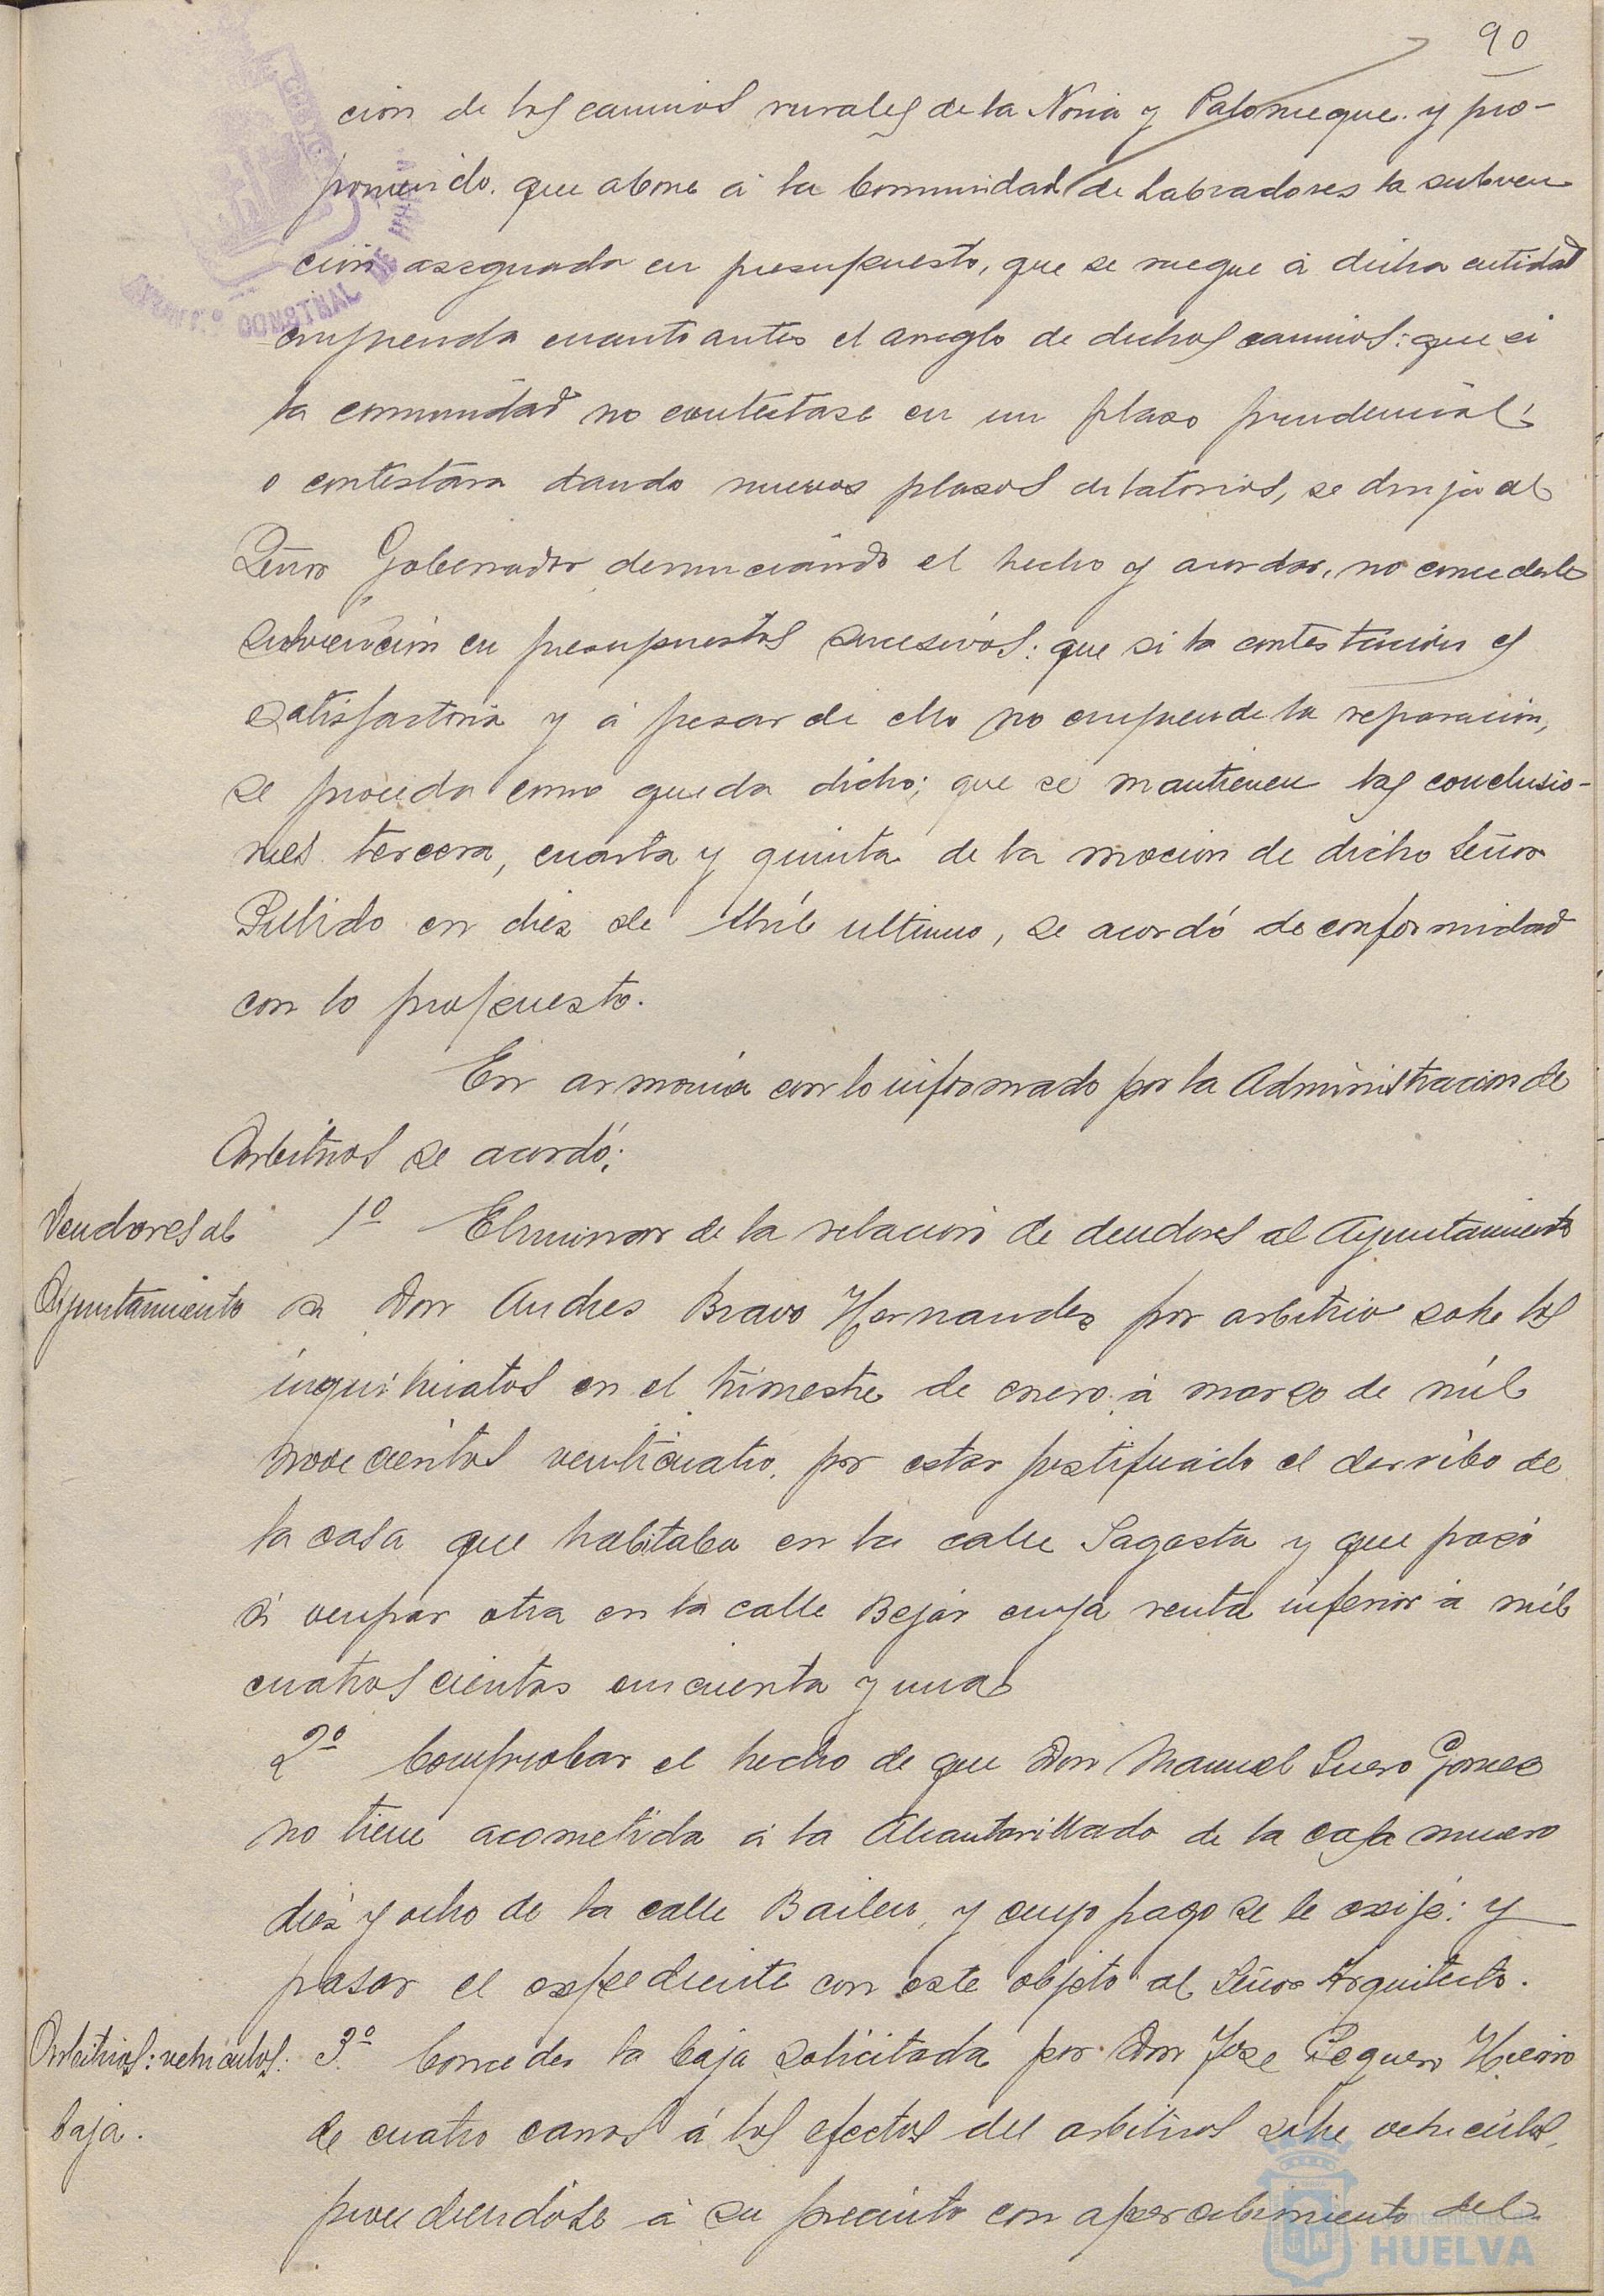 90
cion de los caminos rurales de la Noria y Palomeque. y pro-
poniendo. que abone á la Comunidad de Labradores la subven
cion asignada en presupuesto, que se ruegue á dicha entidad
emprenda cuanto antes el arreglo de dichos caminos: que si
la comunidad no contestase en un plazo prudencial,
o contestara dando nuevos plasos dilatorios, se dirija al
Señor Gobernador denunciando el hecho y acordar, no concederle
subvención en presupuestos sucesivos: que si la contestación es
satisfactoria y á pesar de ello no emprende la reparacion,
se proceda como queda dicho; que se mantienen las conclusio-
nes tercera, cuarta y quinta de la mocion de dicho Señor
Pulido en diez de Abril ultimo, se acordó de conformidad
con lo propuesto.
En armonia con lo informado por la Administracion de
Arbitrios se acordó;
Deudores al
Ayuntamiento
1º Eliminar de la relacion de deudores al Ayuntamiento
a Don Andres Bravo Hernandez por arbitrio sobre los
inquilinatos en el trimestre de enero á marzo de mil
novecientos veinticuatro, por estar justificado el derribo de
la casa que habitaba en la calle Sagasta y que pasó
á ocupar otra en la calle Bejar cuya renta inferior á mil
cuatroscientas cincuenta y una
2º Comprobar el hecho de que Don Manuel Suero Gomez
no tiene acometida á la Alcantarillado de la casa numero
diez y ocho de la calle Bailen, y cuyo pago se le exije: y
pasar el expediente con este objeto al Señor Arquitecto.
Arbitrios: vehiculos:
baja.
3º Conceder la baja solicitada por Don Jose Peguero Hierro
de cuatro carros á los efectos del arbitrios sobre vehiculos,
procediendose á su precinto con apercibimiento del
Ayuntamiento de
HUELVA